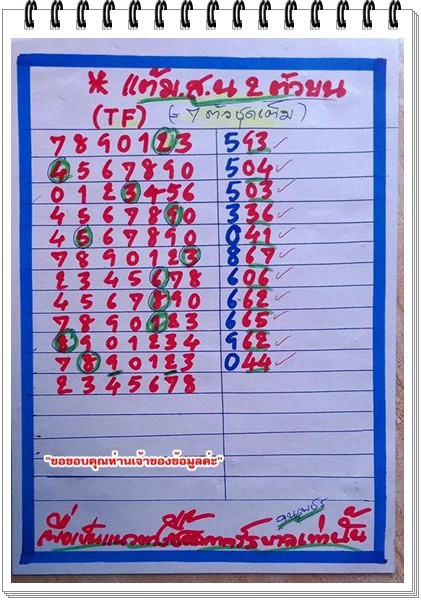 * แต้ม ส.น 2 ตัวบน
(TF) (= 7 ตัวชุดเต็ม)
7 8 9 0 1 2 3 593 ✓
4 5 6 7 8 9 0 504 ✓
0 1 2 3 4 5 6 503 ✓
4 5 6 7 8 9 0 336 ✓
4 5 6 7 8 9 0 041 ✓
7 8 9 0 1 2 3 867 ✓
2 3 4 5 6 7 8 606 ✓
4 5 6 7 8 9 0 662 ✓
7 8 9 0 1 2 3 665 ✓
8 9 0 1 2 3 4 962 ✓
7 8 9 0 1 2 3 044 ✓
2 3 4 5 6 7 8
"ขอขอบคุณท่านเจ้าของข้อมูลค่ะ"
เพื่อเป็นแนวทาง
เท่านั้น